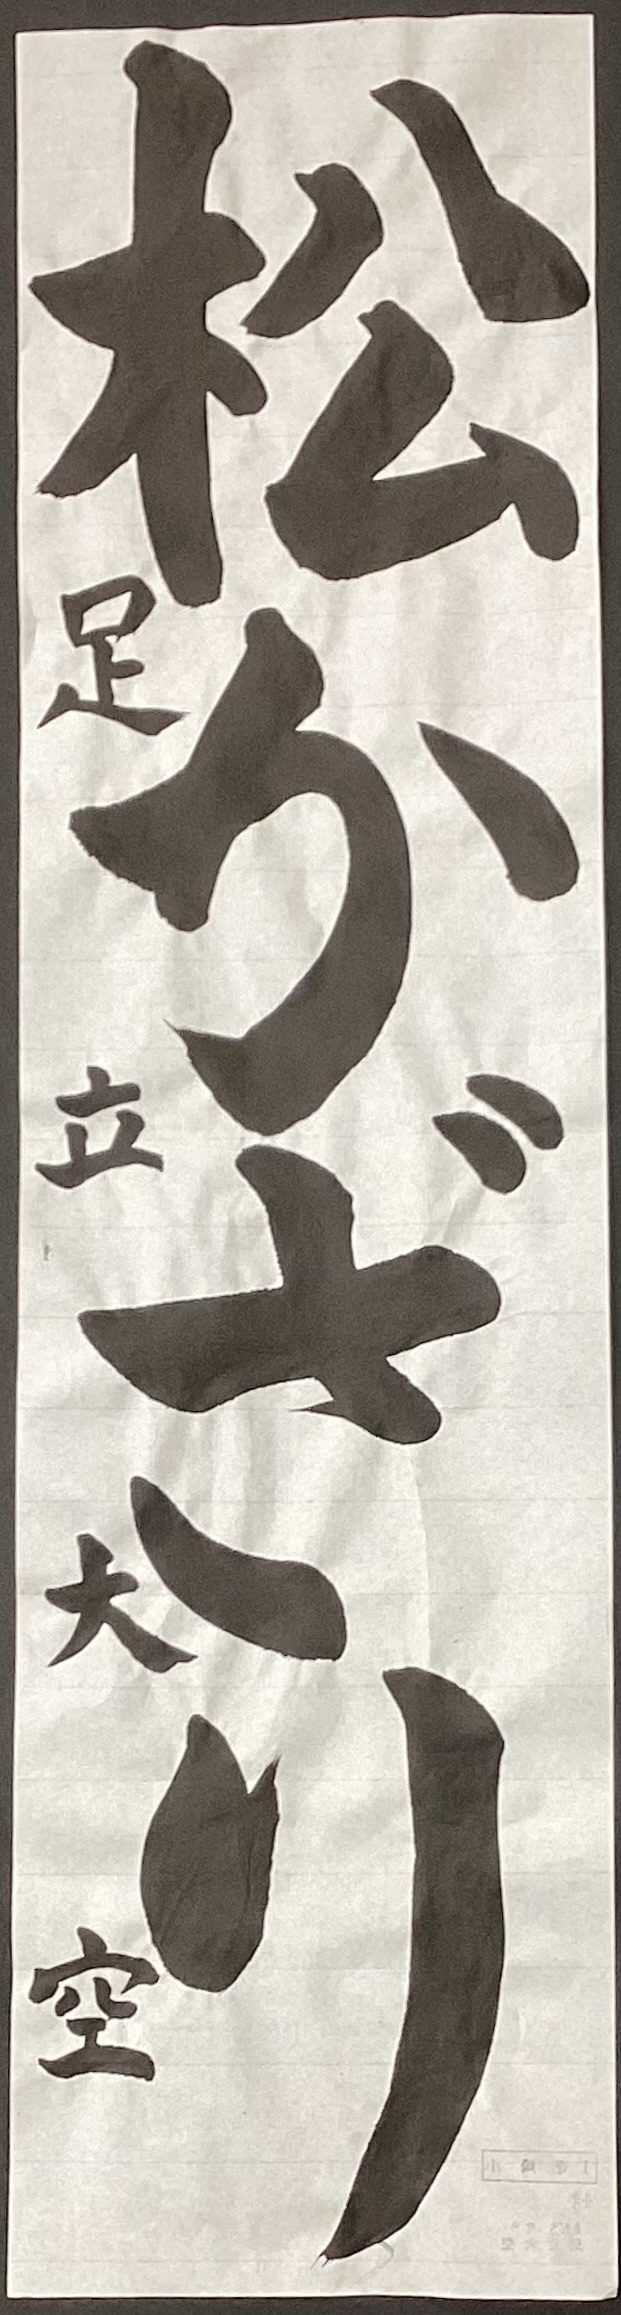 松かざり
足立大空